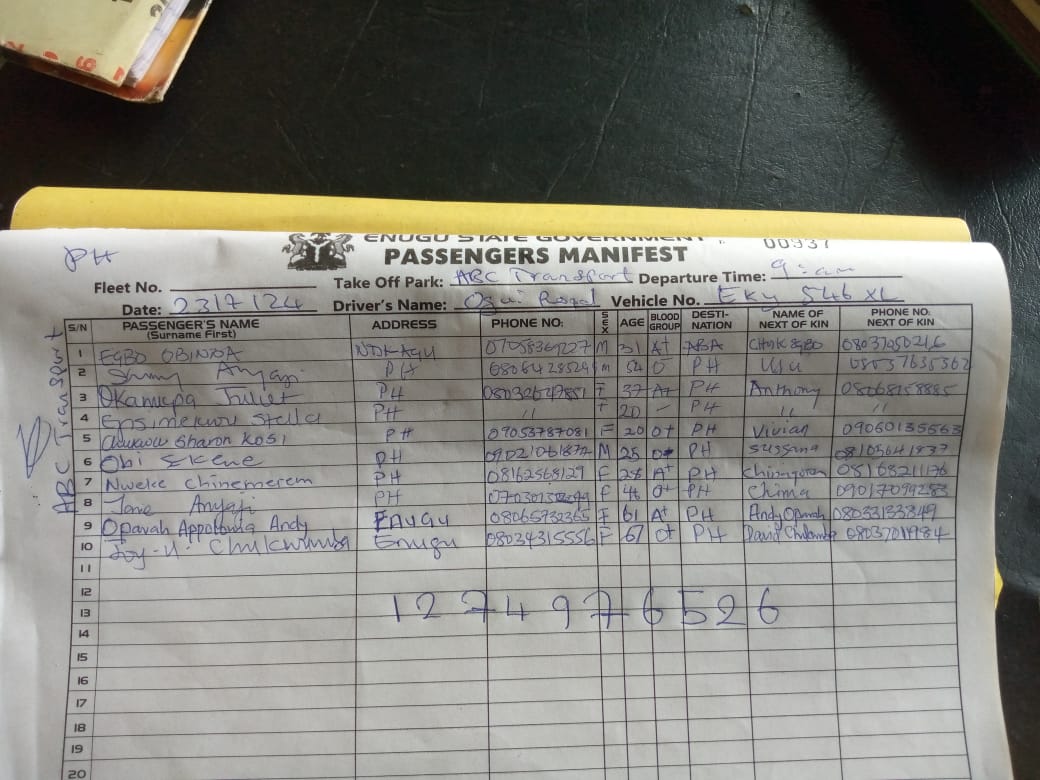 ENUGU STATE GOVERNMENT
00937
PH
PASSENGERS MANIFEST
Fleet No. Take Off Park: ABC Transport Departure Time: 9:am
Date: 23/7/24 Driver's Name: Ogui Road Vehicle No. EKY 546 XL
ABC Transport
S/N PASSENGER'S NAME (Surname First) ADDRESS PHONE NO: SEX AGE BLOOD GROUP DESTI-NATION NAME OF NEXT OF KIN PHONE NO: NEXT OF KIN
1 EGBO OBINNA 07058369227 M 31 A+ ABA EGBO
2 Sunny Anyaji PH 08064285294 M 54 PH
3 Juliet PH F 37 A+ PH Anthony 08068158885
4 Stella PH " F 20 - PH " "
5 Chukwu Sharon Kosi PH 09053787081 F 20 O+ PH Vivian 09060135563
6 Obi PH M 25 PH 08103641837
7 Nweke Chinemerem PH 08162568129 F 28 A+ PH 08168211176
8 Jane Anyaji PH F O+ PH Chima 09017099283
9 Oparah Andy ENUGU 08065732365 F 61 A+ PH Andy Oparah 08033133849
10 Joy Enugu 08034315556 F 67 O+ PH David
11
12
1274976526
13
14
15
16
17
18
19
20